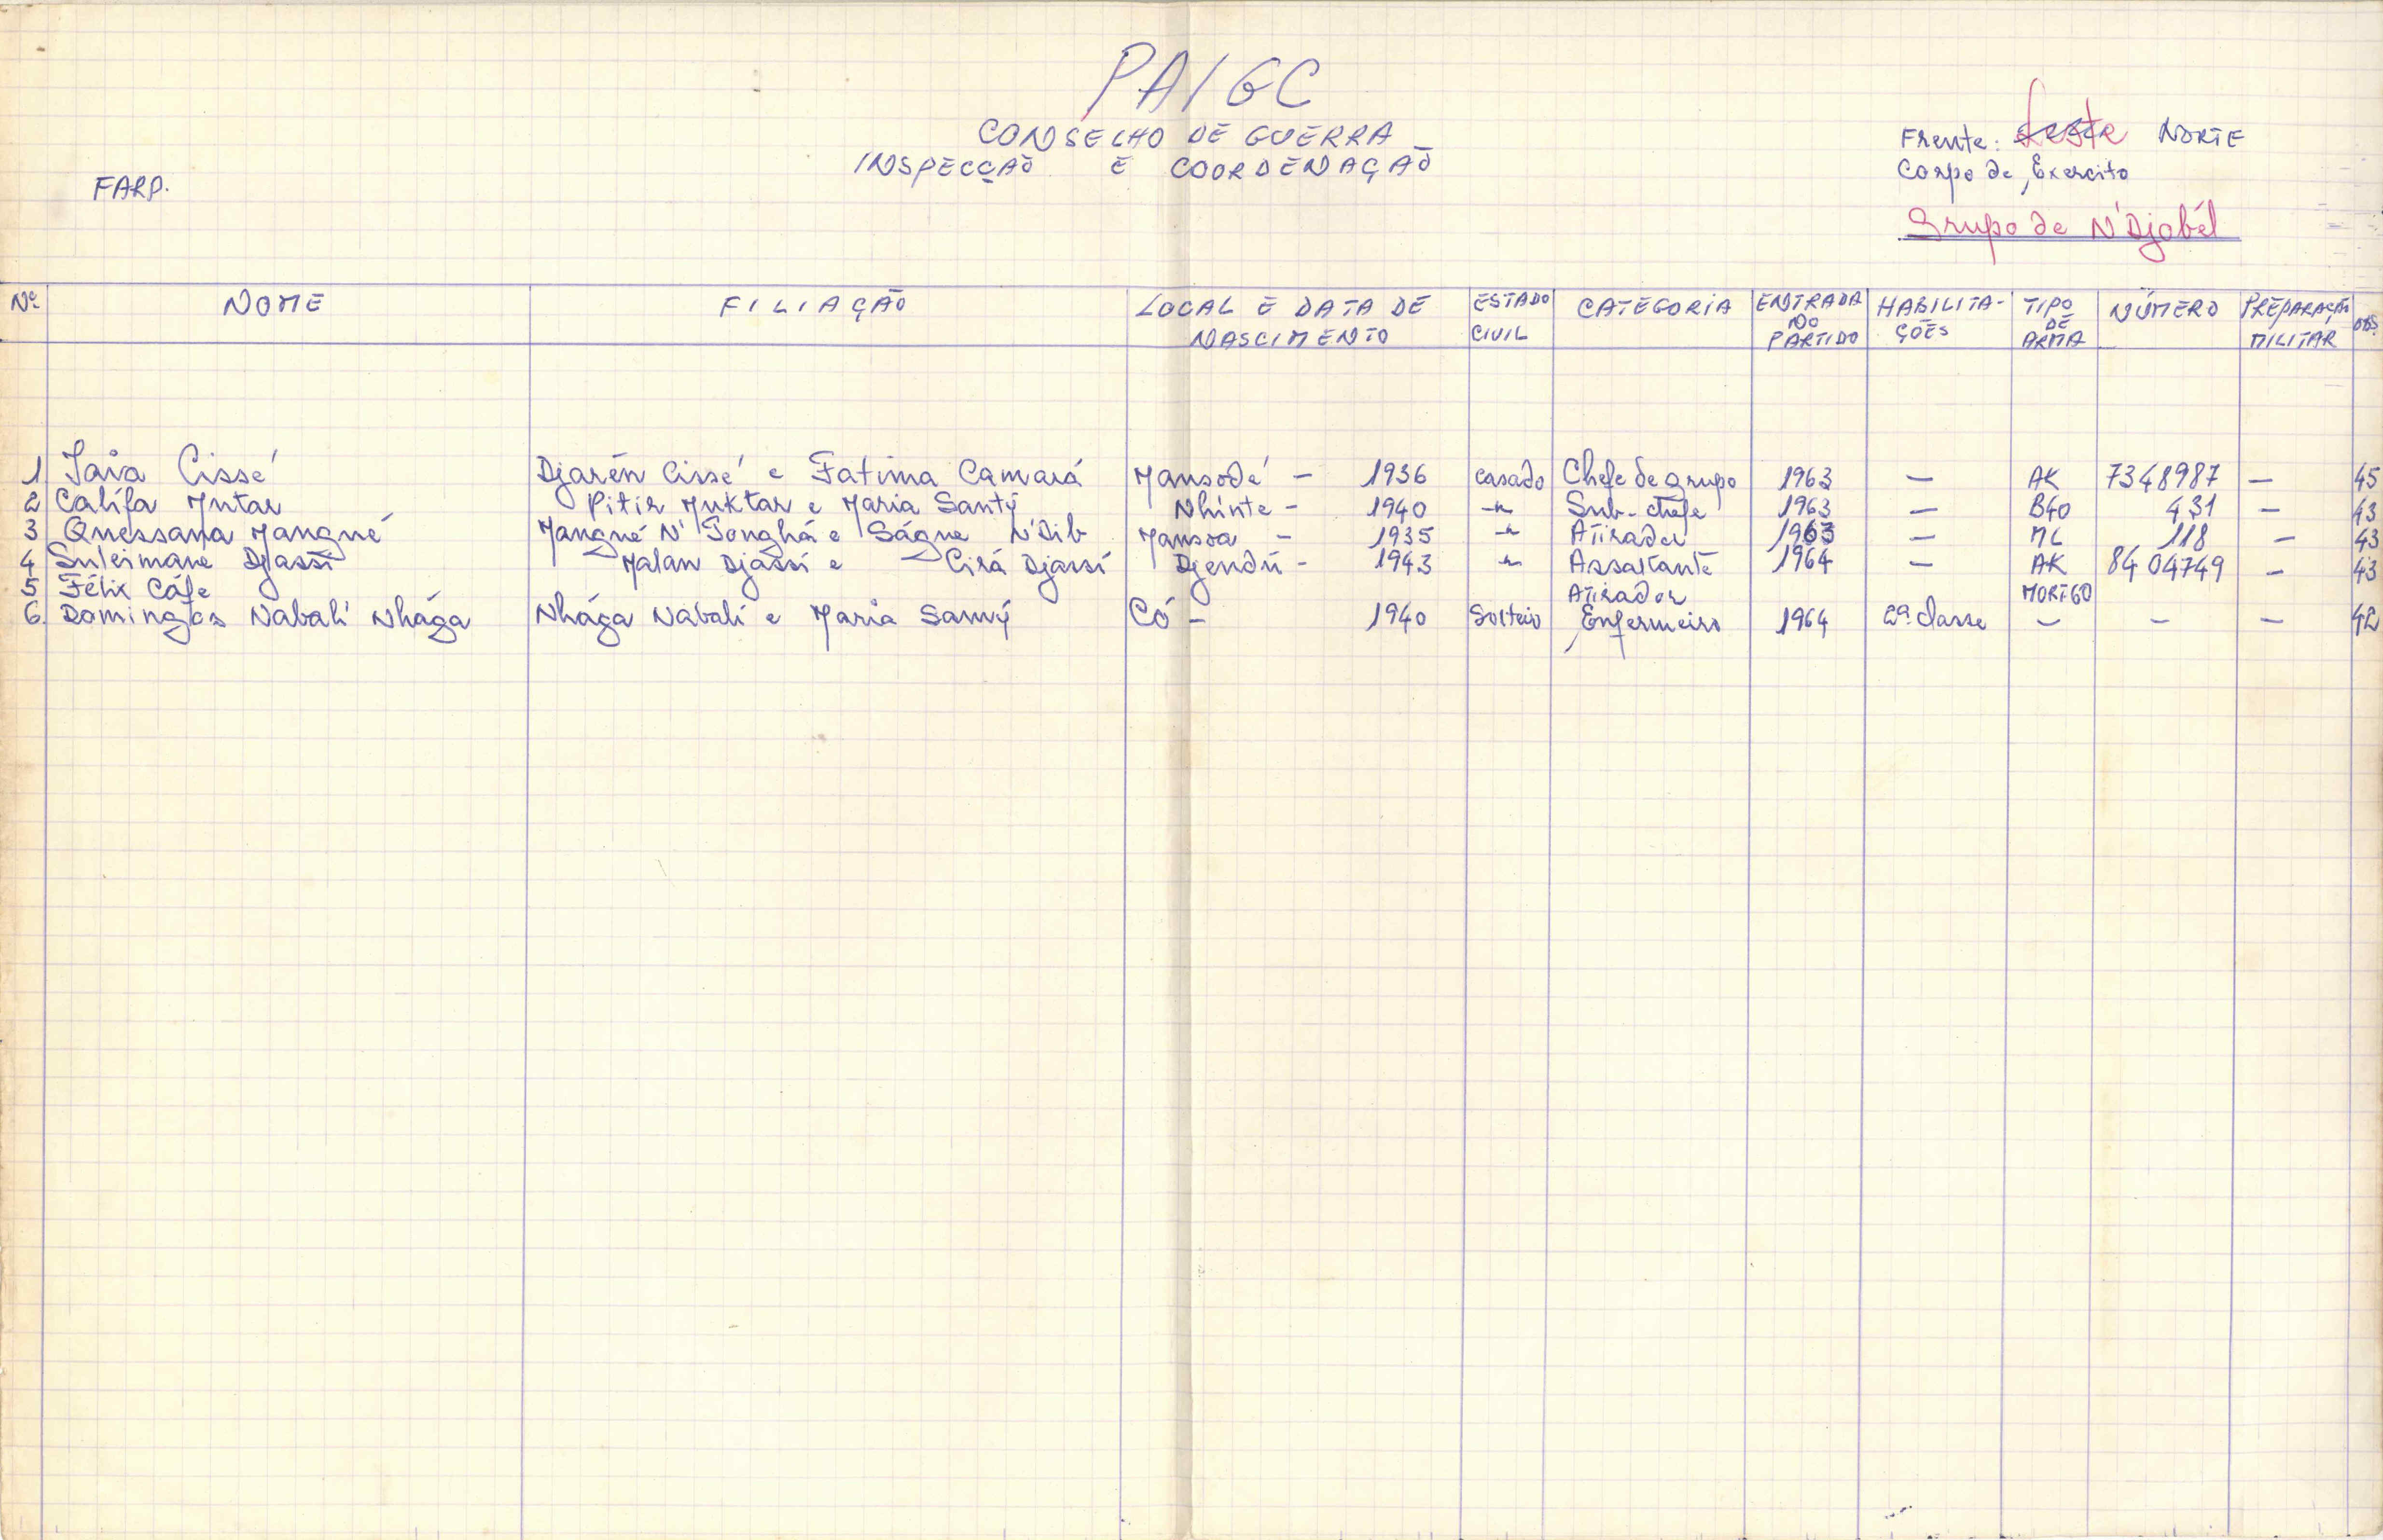 PAIGC
CONSELHO DE GUERRA
INSPECÇÃO E COORDENAÇÃO
FARP.
Frente: Leste NORTE
Corpo de Exercito
Grupo de N'Djabél
Nº NOME FILIAÇÃO LOCAL E DATA DE NASCIMENTO ESTADO CIVIL CATEGORIA ENTRADA NO PARTIDO HABILITA-ÇÕES TIPO DE ARMA NÚMERO PREPARAÇÃO MILITAR OBS.
1 Iaia Cissé Djarén Cissé e Fatima Camará Mansodé - 1936 casado Chefe de grupo 1963 — AK 7348987 — 45
2 Califa Mutar Pitir Muktar e Maria Santý Nhínte - 1940 -"- Sub-chefe 1963 — B40 431 — 43
3 Quessana Mangné Mangné N'Tonghá e Ságne N'Dib Mansoa - 1935 -"- Atirador 1963 — ML 118 — 43
4 Suleimane Djassi Malan Djassi e Cirá Djassi Djendú - 1943 -"- Assaltante 1964 — AK 8404749 — 43
5 Félix Cáfe Atirador MORT60
6 Domingos Nabali Nhága Nhága Nabalí e Maria Samý Có - 1940 Solteiro Enfermeiro 1964 2ª classe — — — 42